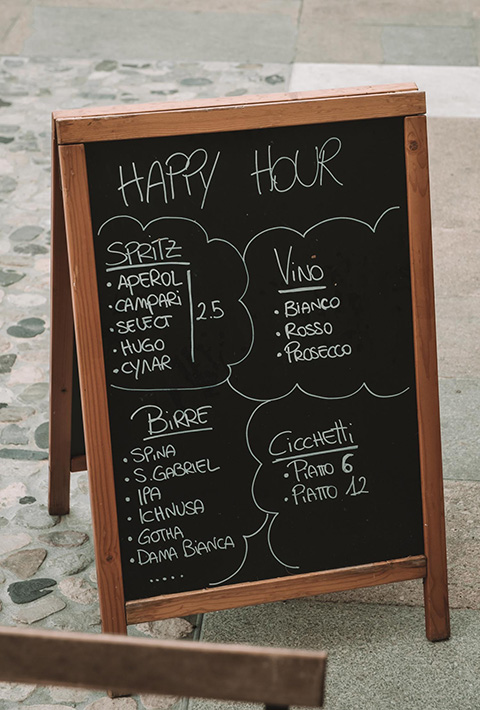 HAPPY HOUR
SPRITZ
• APEROL
• CAMPARI
• SELECT
• HUGO
• CYNAR
2.5
Vino
• BIANCO
• ROSSO
• PROSECCO
BIRRE
• SPINA
• S. GABRIEL
• IPA
• ICHNUSA
• GOTHA
• DAMA BIANCA
.....
CICCHETTI
• PIATTO 6
• PIATTO 12